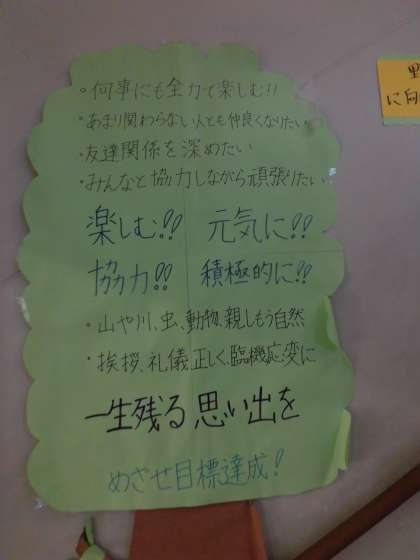 ・何事にも全力で楽しむ!!
・あまり関わらない人とも仲良くなりたい
・友達関係を深めたい
・みんなと協力しながら頑張りたい
楽しむ!! 元気に!!
協力!! 積極的に!!
・山や川、虫、動物、親しもう自然
・挨拶、礼儀、正しく、臨機応変に
一生残る思い出を
めざせ目標達成!
野
に向